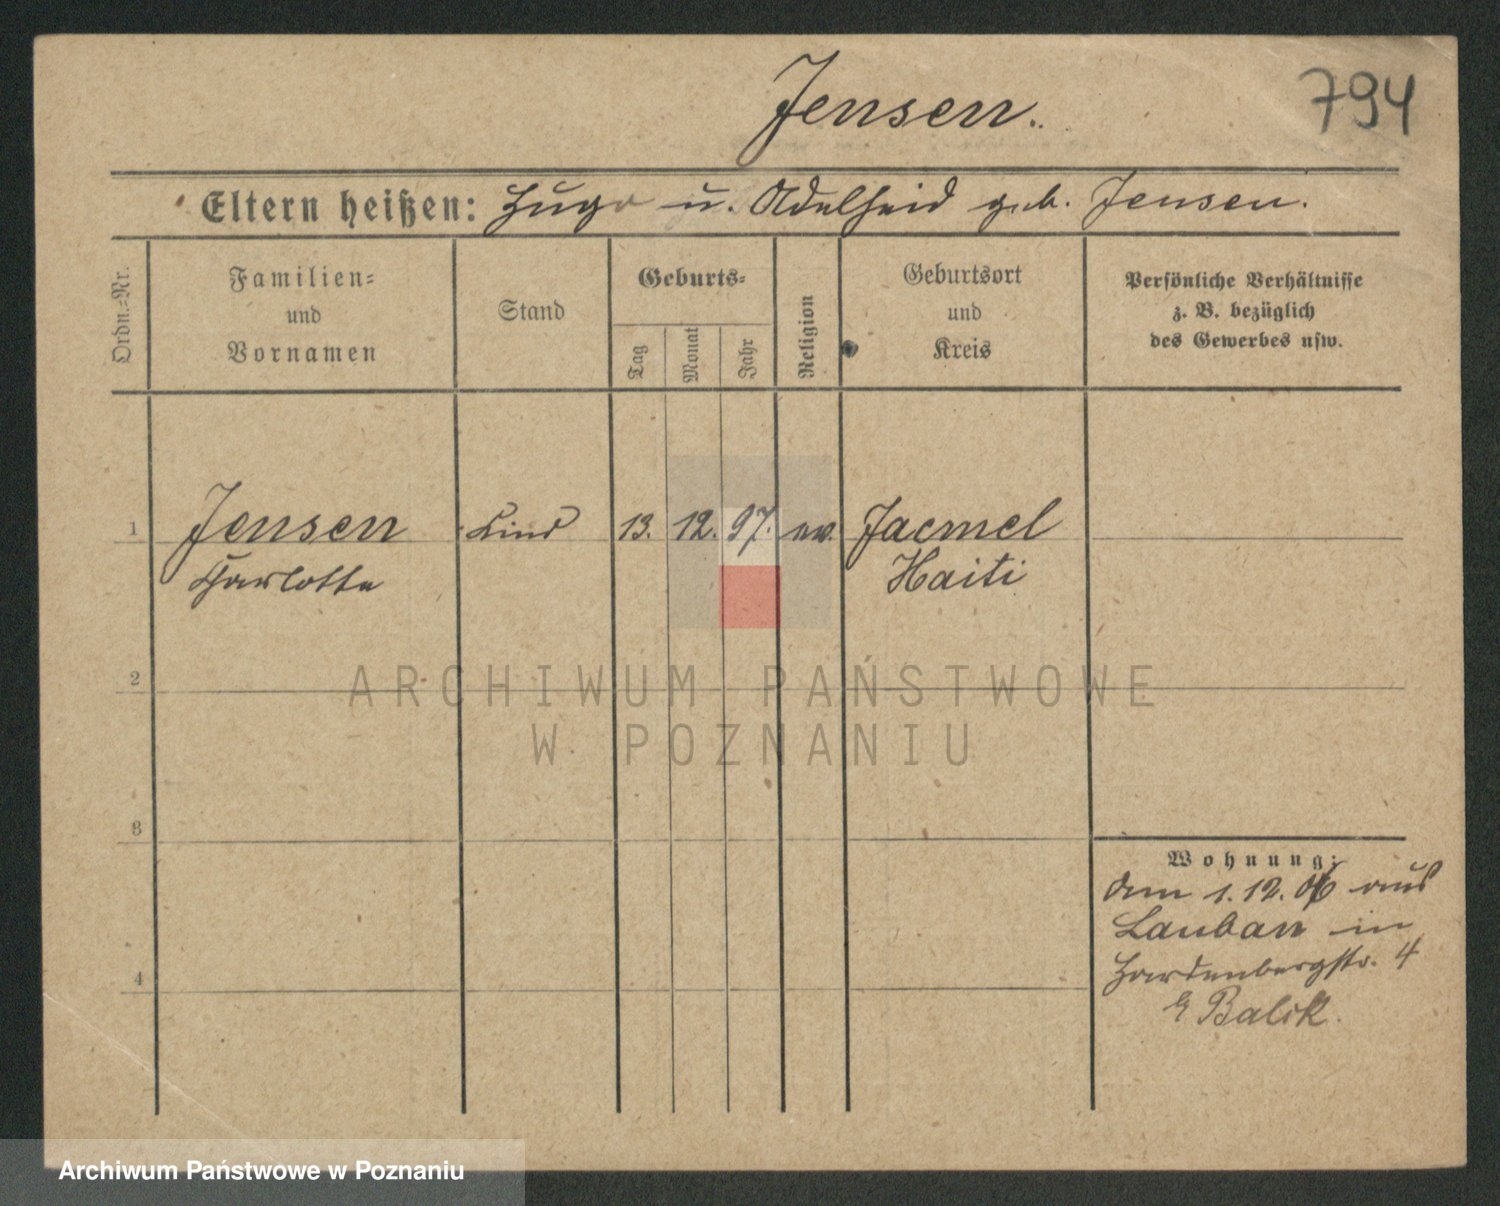 Jensen.
794
Eltern heißen: Hugo u. Adelheid geb. Jensen.
Ordn.-Nr.
Familien-
und
Vornamen
Stand
Geburts-
Tag
Monat
Jahr
Religion
Geburtsort
und
Kreis
Persönliche Verhältnisse
z. B. bezüglich
des Gewerbes usw.
1 Jensen Kind 13. 12. 97. ev. Jacmel
Charlotte Haiti
2
3
4
Wohnung:
Am 1.12.06 aus
Lauban in
Hardenbergstr. 4
b Balik.
ARCHIWUM PAŃSTWOWE
W POZNANIU
Archiwum Państwowe w Poznaniu